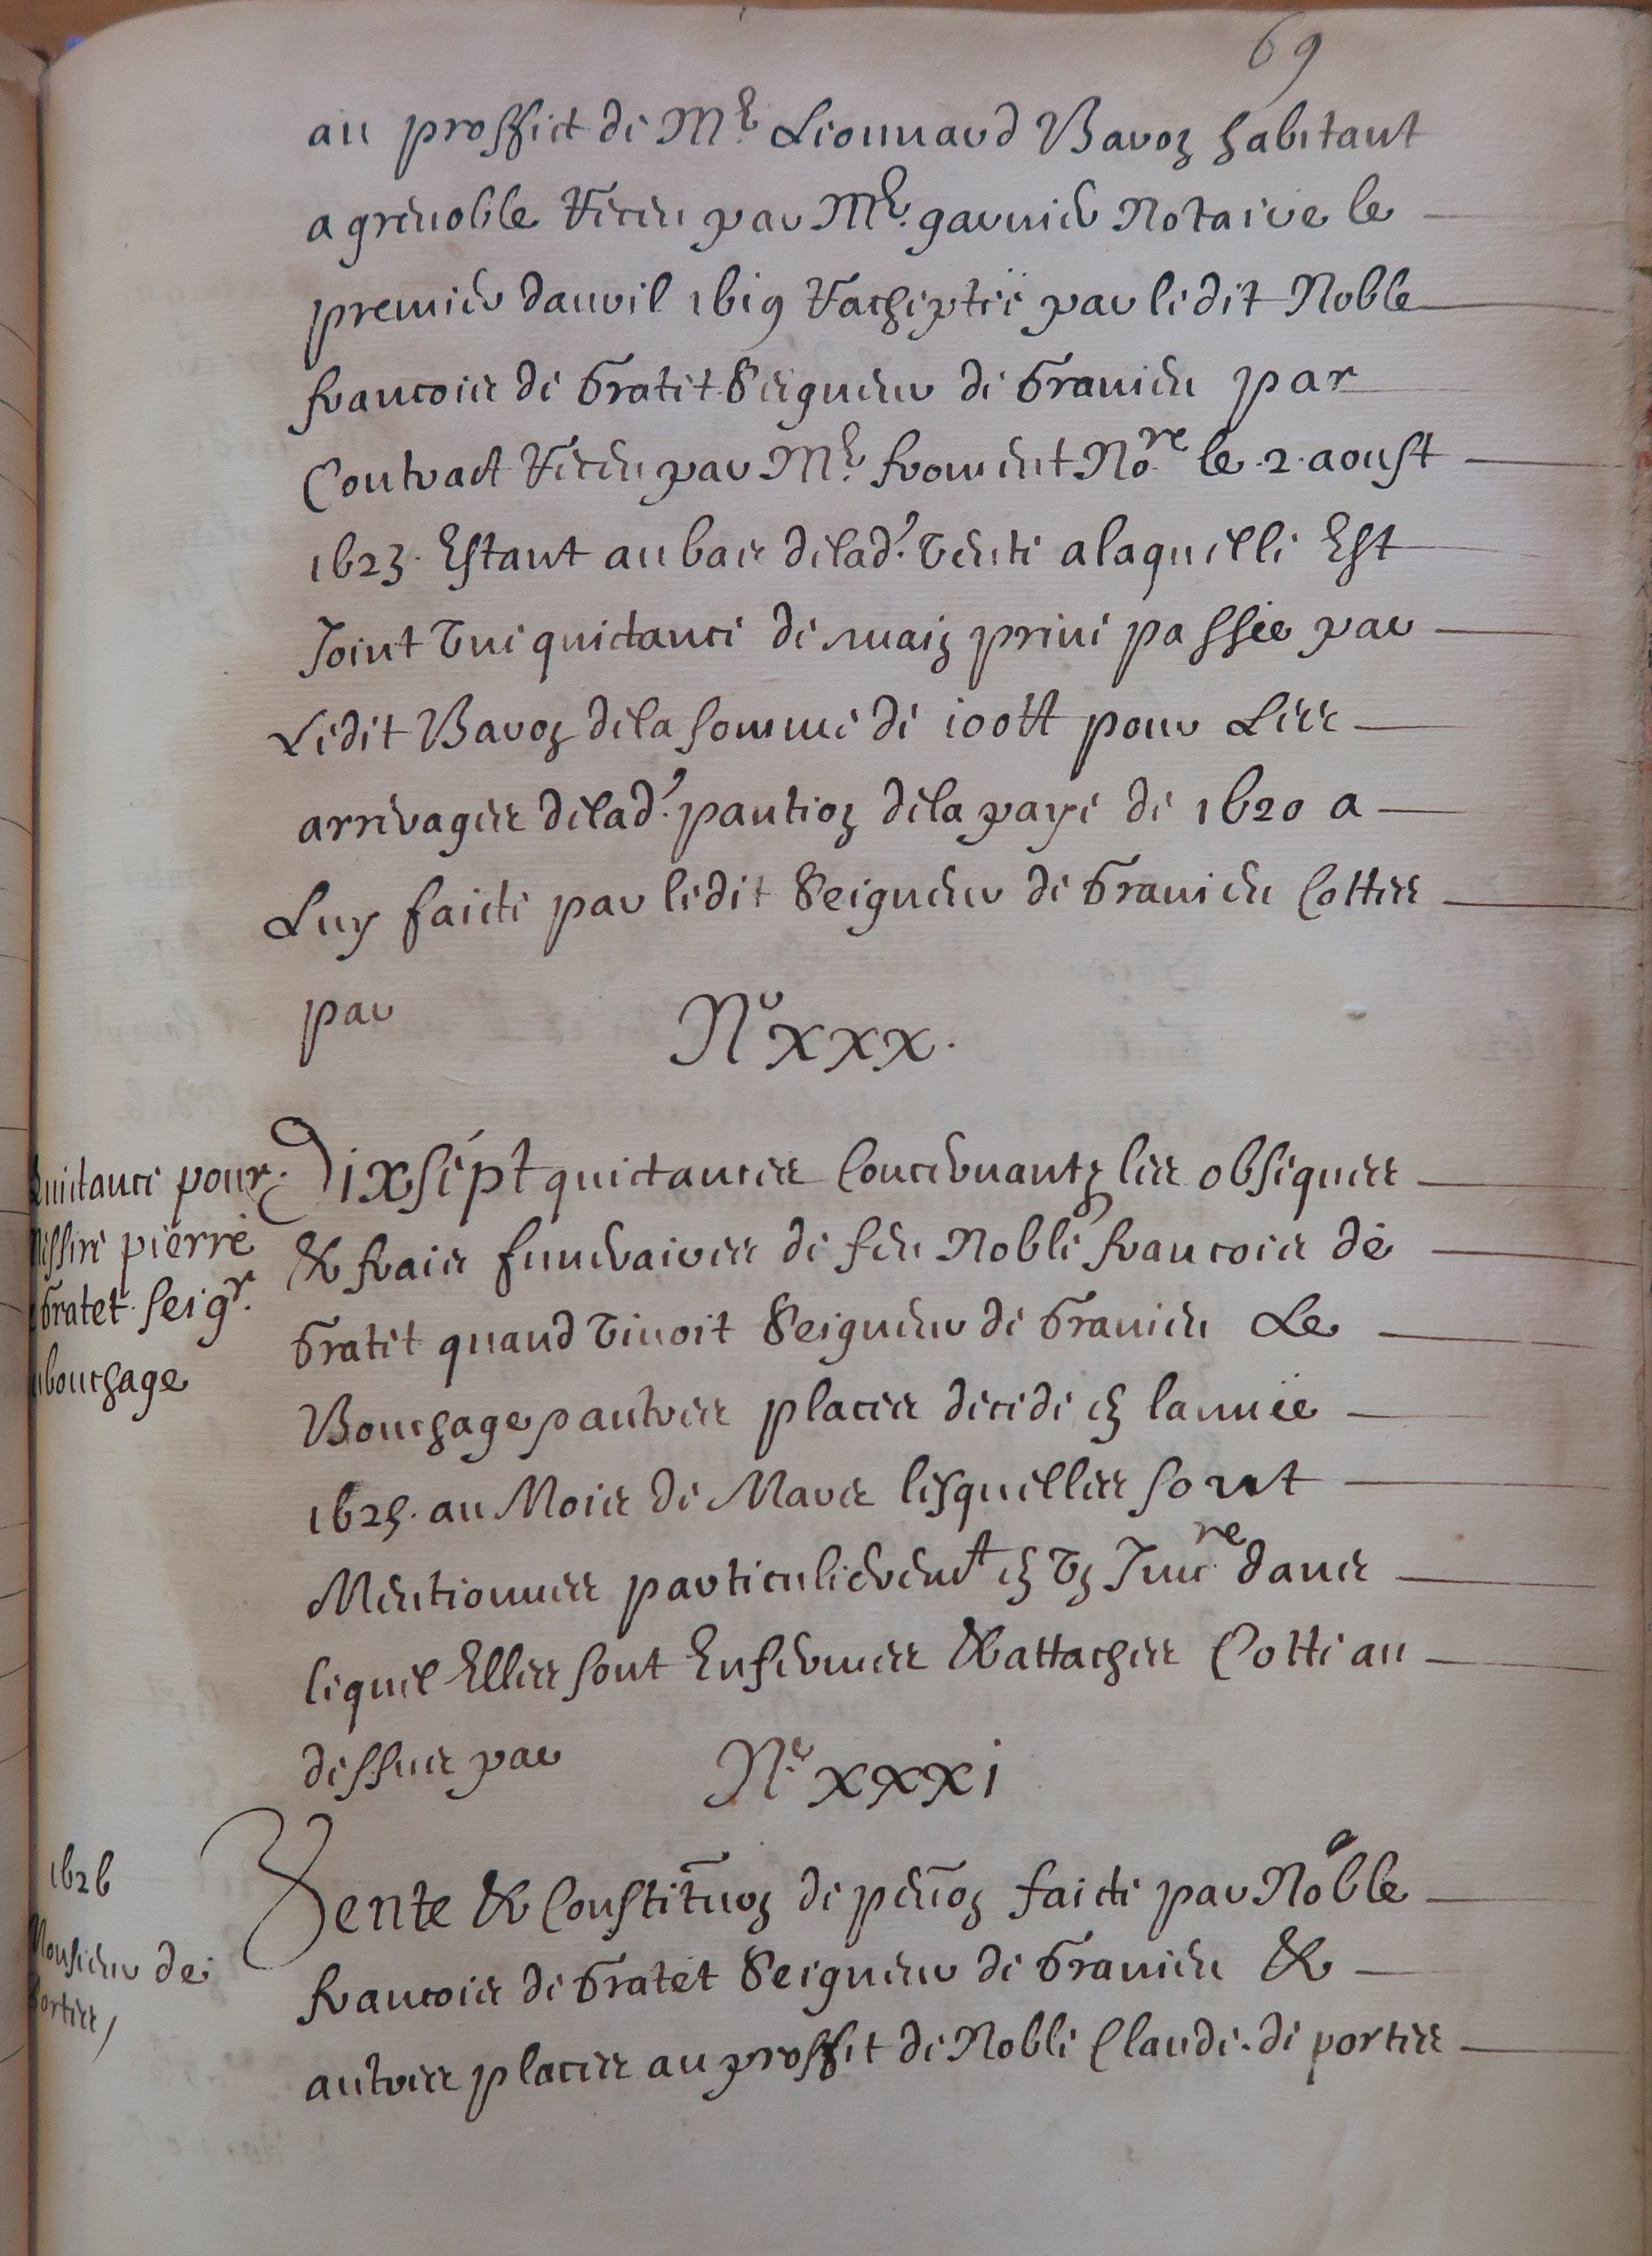 69
au proffict de Mr. Leonnard Baron habitant
a grenoble Receu par Mr. garnier Notaire le
premier dapvril 1619 Rachептée par ledit Noble
francois de Gratet Seigneur de Granieu par
Contract Receu par Mr. froment Nore. le 2. aoust
1623. Estant au bas de lad'. vente a laquelle Est
Joint vne quictance de main prive passée par
Ledit Baron de la somme de 100tt pour Les
arrerages de lad'. pantion de la paye de 1620 a
Luy faicte par ledit Seigneur de Granieu Cottés
par No xxx.
Quictance pour
Messire pierre
Gratet Seigr.
du bouchage
Dixsept quictances Concernantz les obseques
& frais funeraires de feu Noble francois de
Gratet quand vivoit Seigneur de Granieu Le
Bouchage & autres places decedé en lannée
1625. au Mois de Mars lesquelles sont
Mentionnes particulierement en vn Invre. dans
lequel Elles sont Enfermes & attaches Cotté au
dessus par Ne. xxxi
1626
Monsieur de
Portes
Vente & Constitu͞on de pen͞on faicte par Noble
francois de Gratet Seigneur de Granieu &
autres places au proffit de Noble Claude. de portes